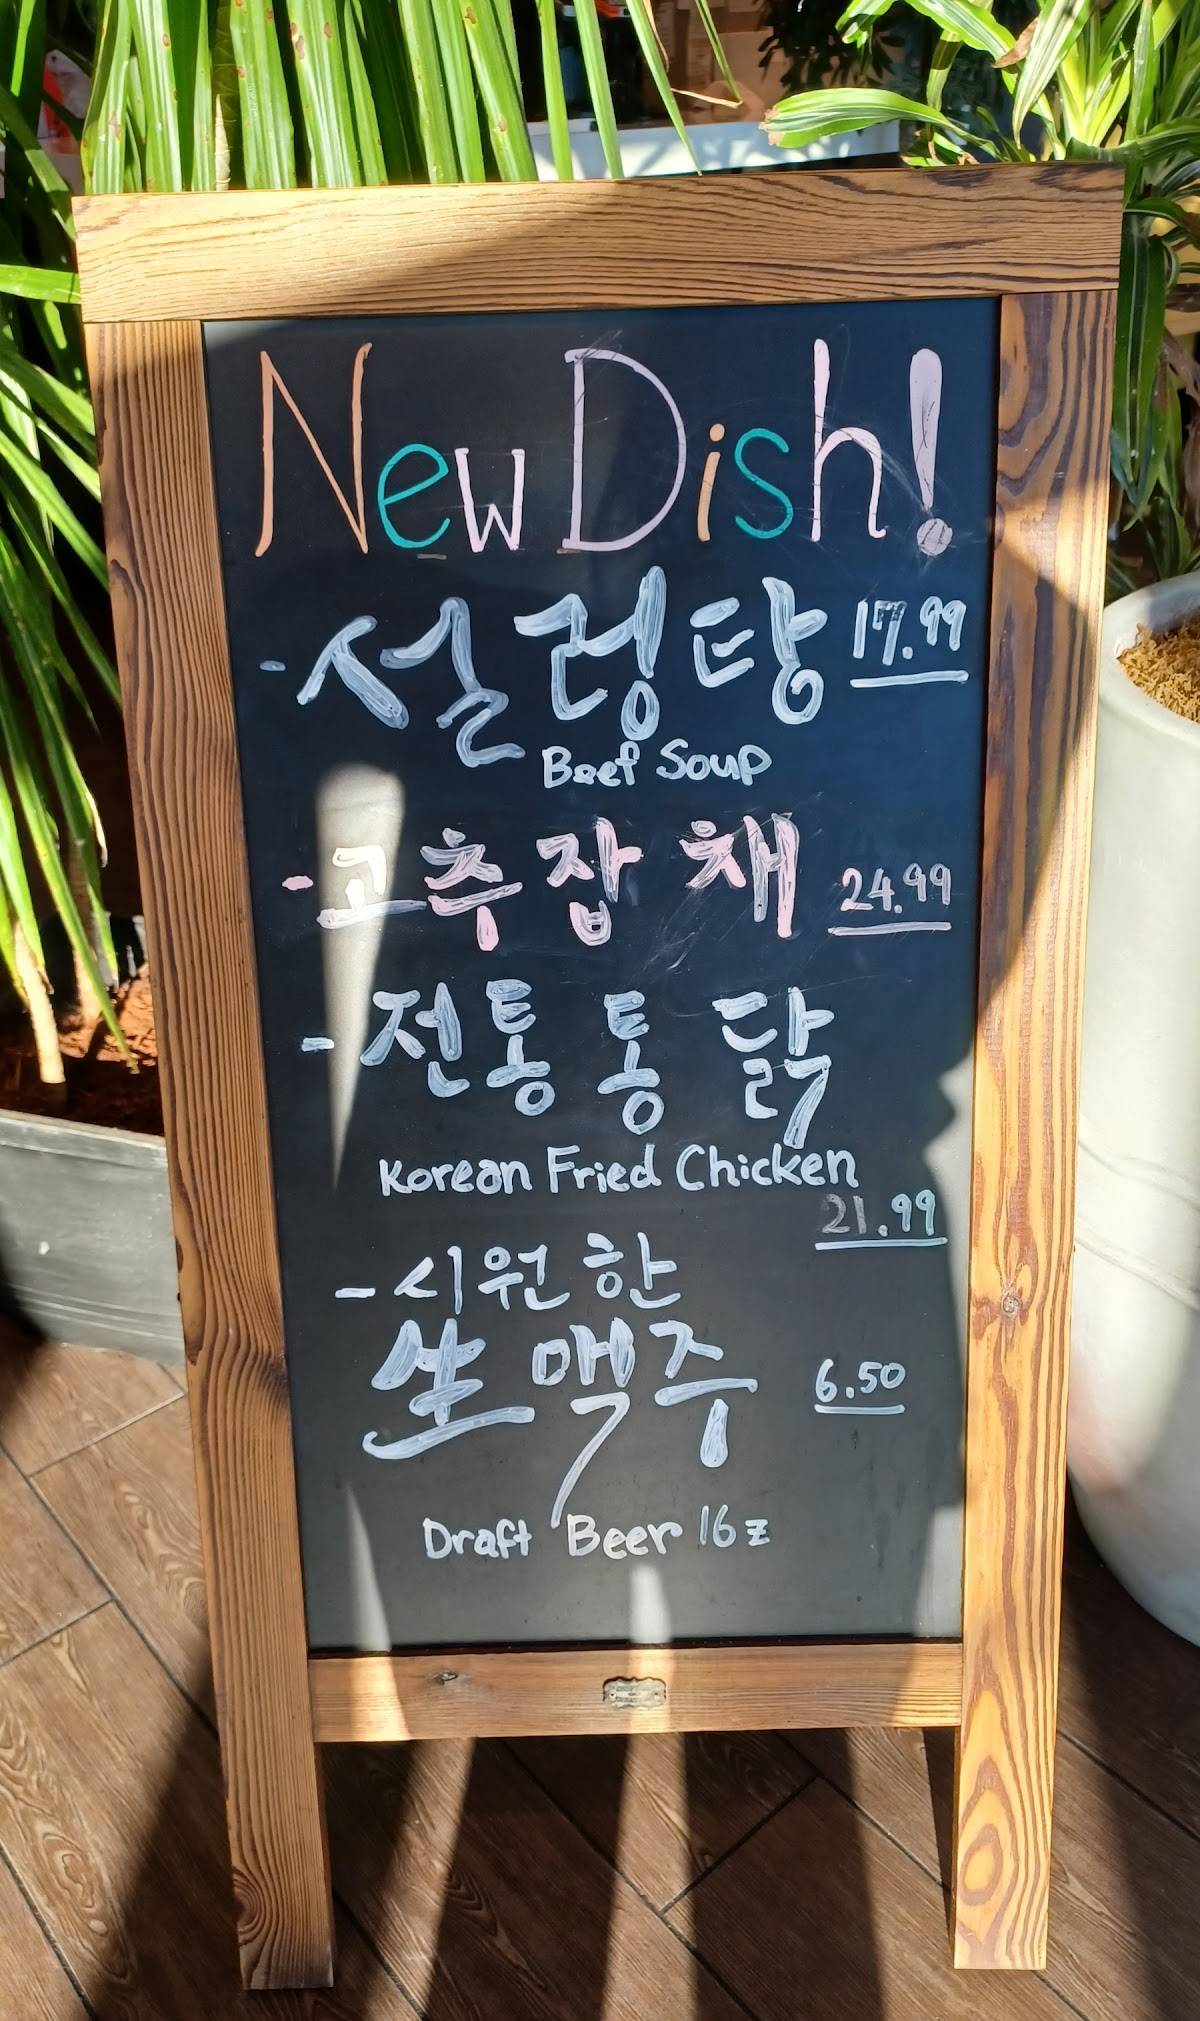 New Dish!
-설렁탕 17.99
Beef Soup
-고추잡채 24.99
-전통통닭
Korean Fried Chicken
21.99
-시원한
生맥주 6.50
Draft Beer 16z